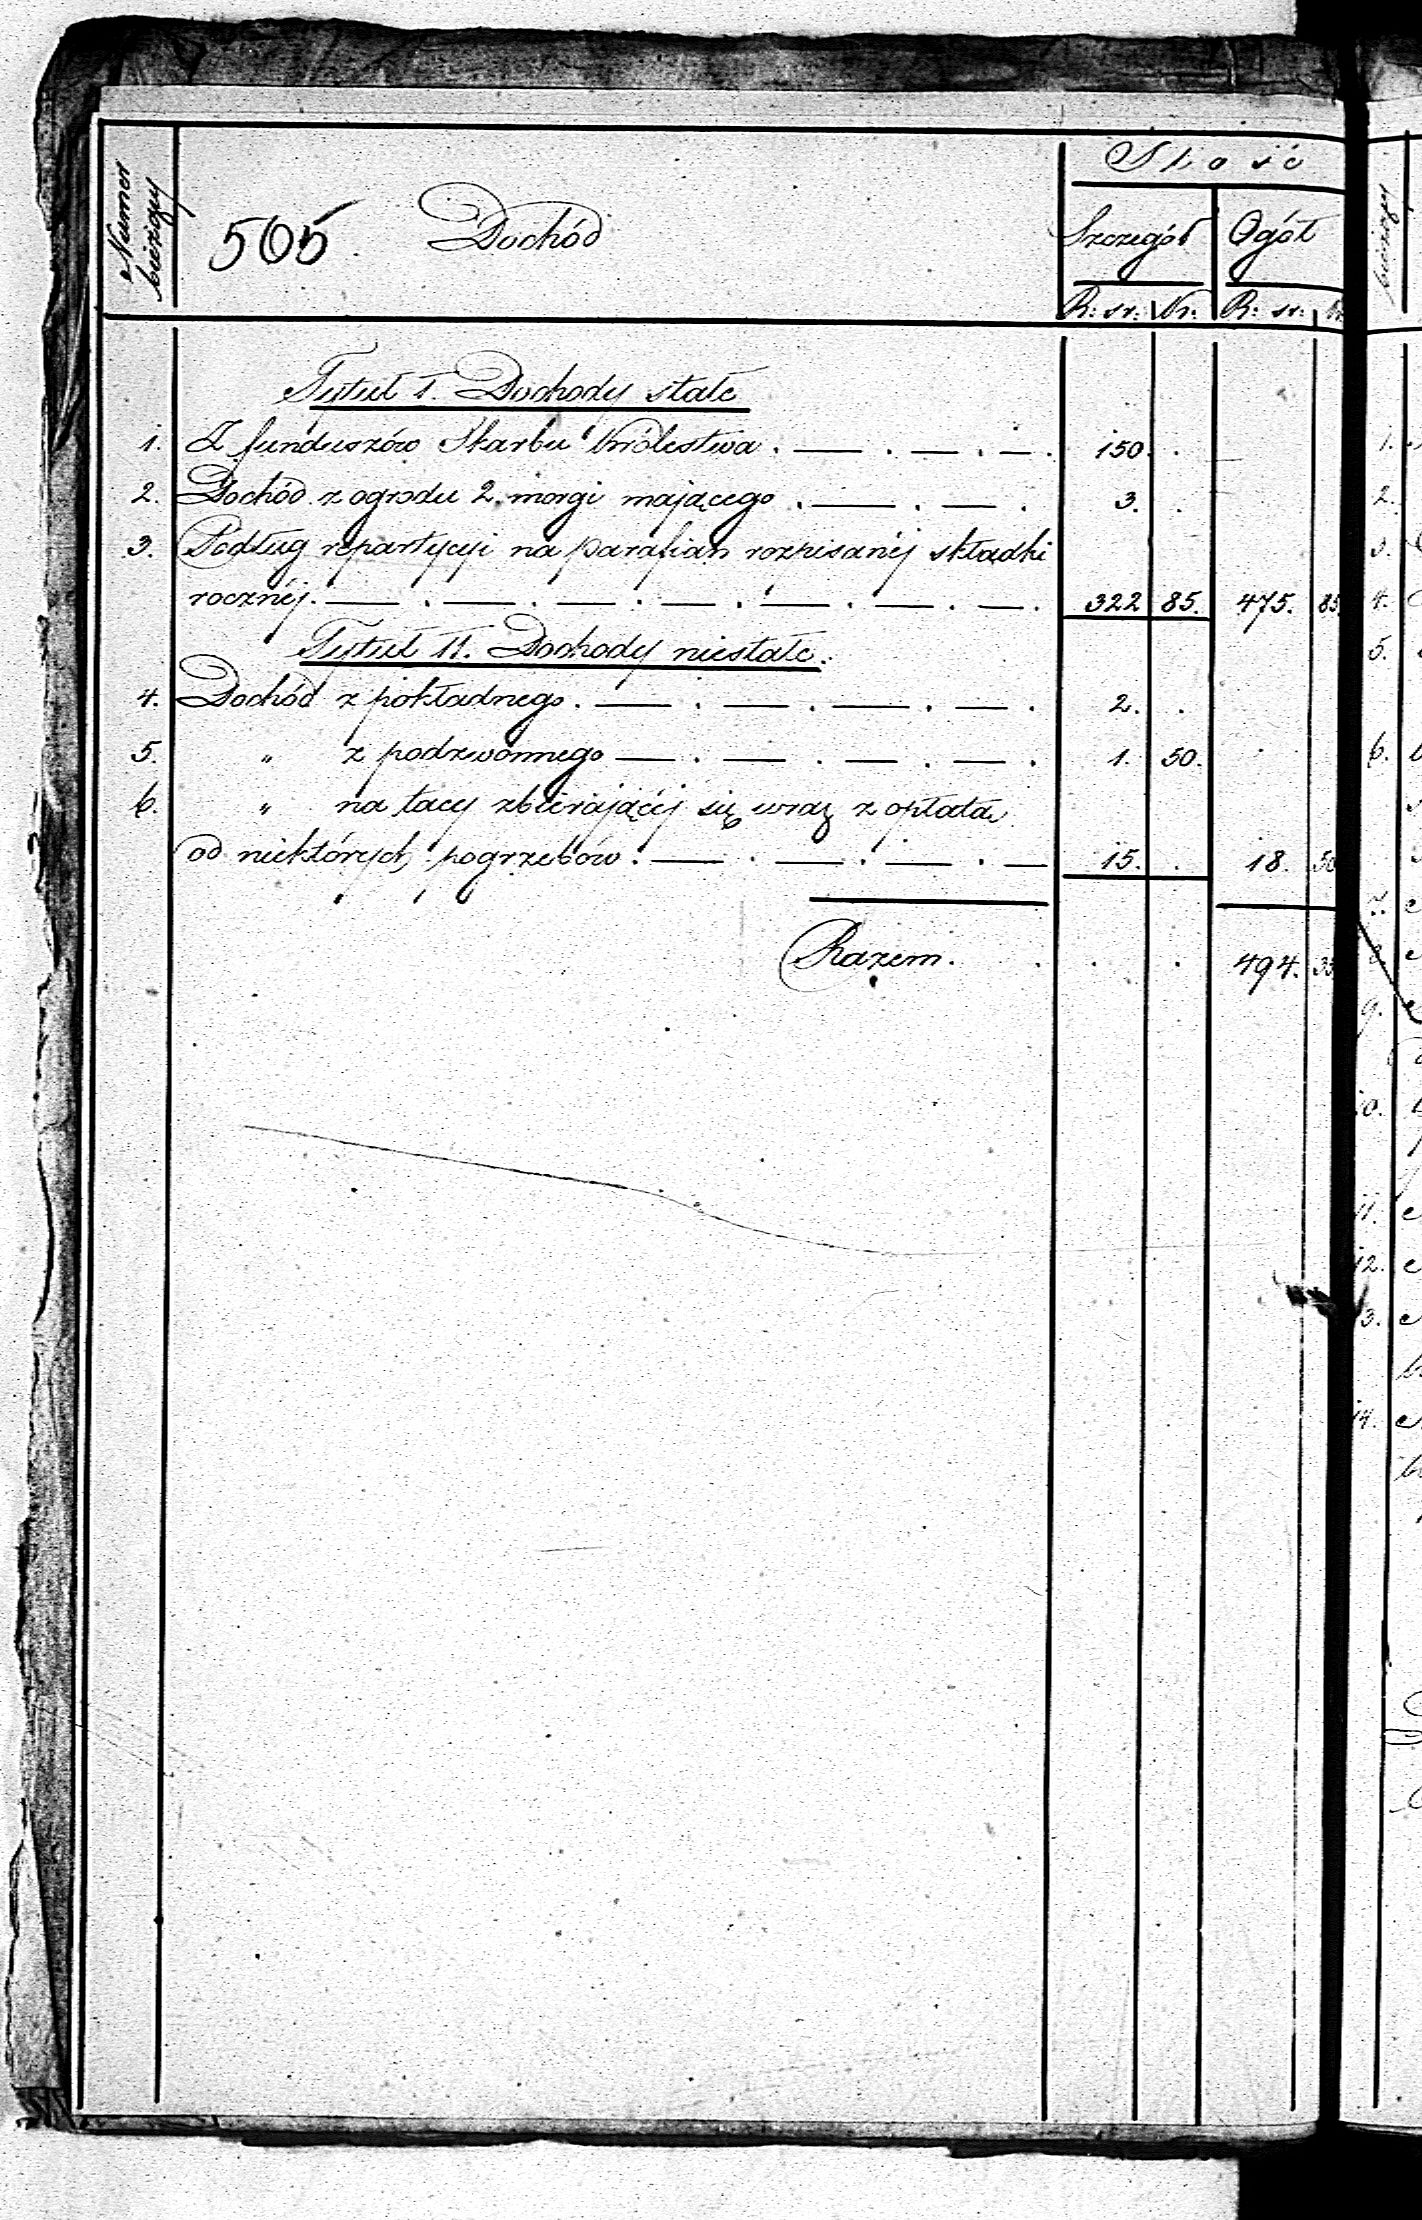 Numer bieżący
505 Dochód
Ilość
Szczegół Ogół
R: sr: Kr: R: sr:
Tytuł I. Dochody stałe
1. Z funduszów Skarbu Królestwa . 150. .
2. Dochód z ogrodu 2. morgi mającego . 3. .
3. Podług repartycyi na parafian rozpisanéj składki
rocznéj. 322 85. 475. 85
Tytuł II. Dochody niestałe.
4. Dochód z pokładnego . 2. .
5. " z podzwonnego 1. 50.
6. " na tacy zbierającéj się wraz z opłatą
od niektórych pogrzebów. 15. . 18. 50
Razem. 494. 35
bieżący
1.
2.
3.
4.
5.
6.
7.
8.
9.
10.
11.
12.
13.
14.